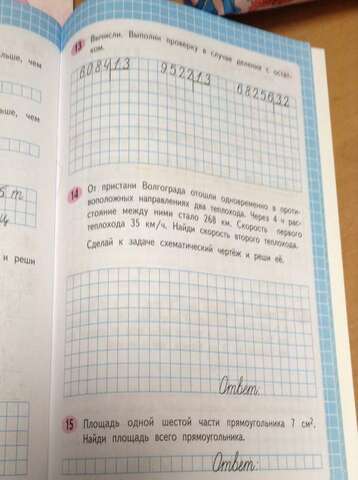 льше, чем
ьше, чем
т
и реши
13 Вычисли. Выполни проверку в случае деления с остат-
ком.
14 От пристани Волгограда отошли одновременно в проти-
воположных направлениях два теплохода. Через 4 ч рас-
стояние между ними стало 268 км. Скорость первого
теплохода 35 км/ч. Найди скорость второго теплохода.
Сделай к задаче схематический чертёж и реши её.
Ответ:
15 Площадь одной шестой части прямоугольника 7 см².
Найди площадь всего прямоугольника.
Ответ: